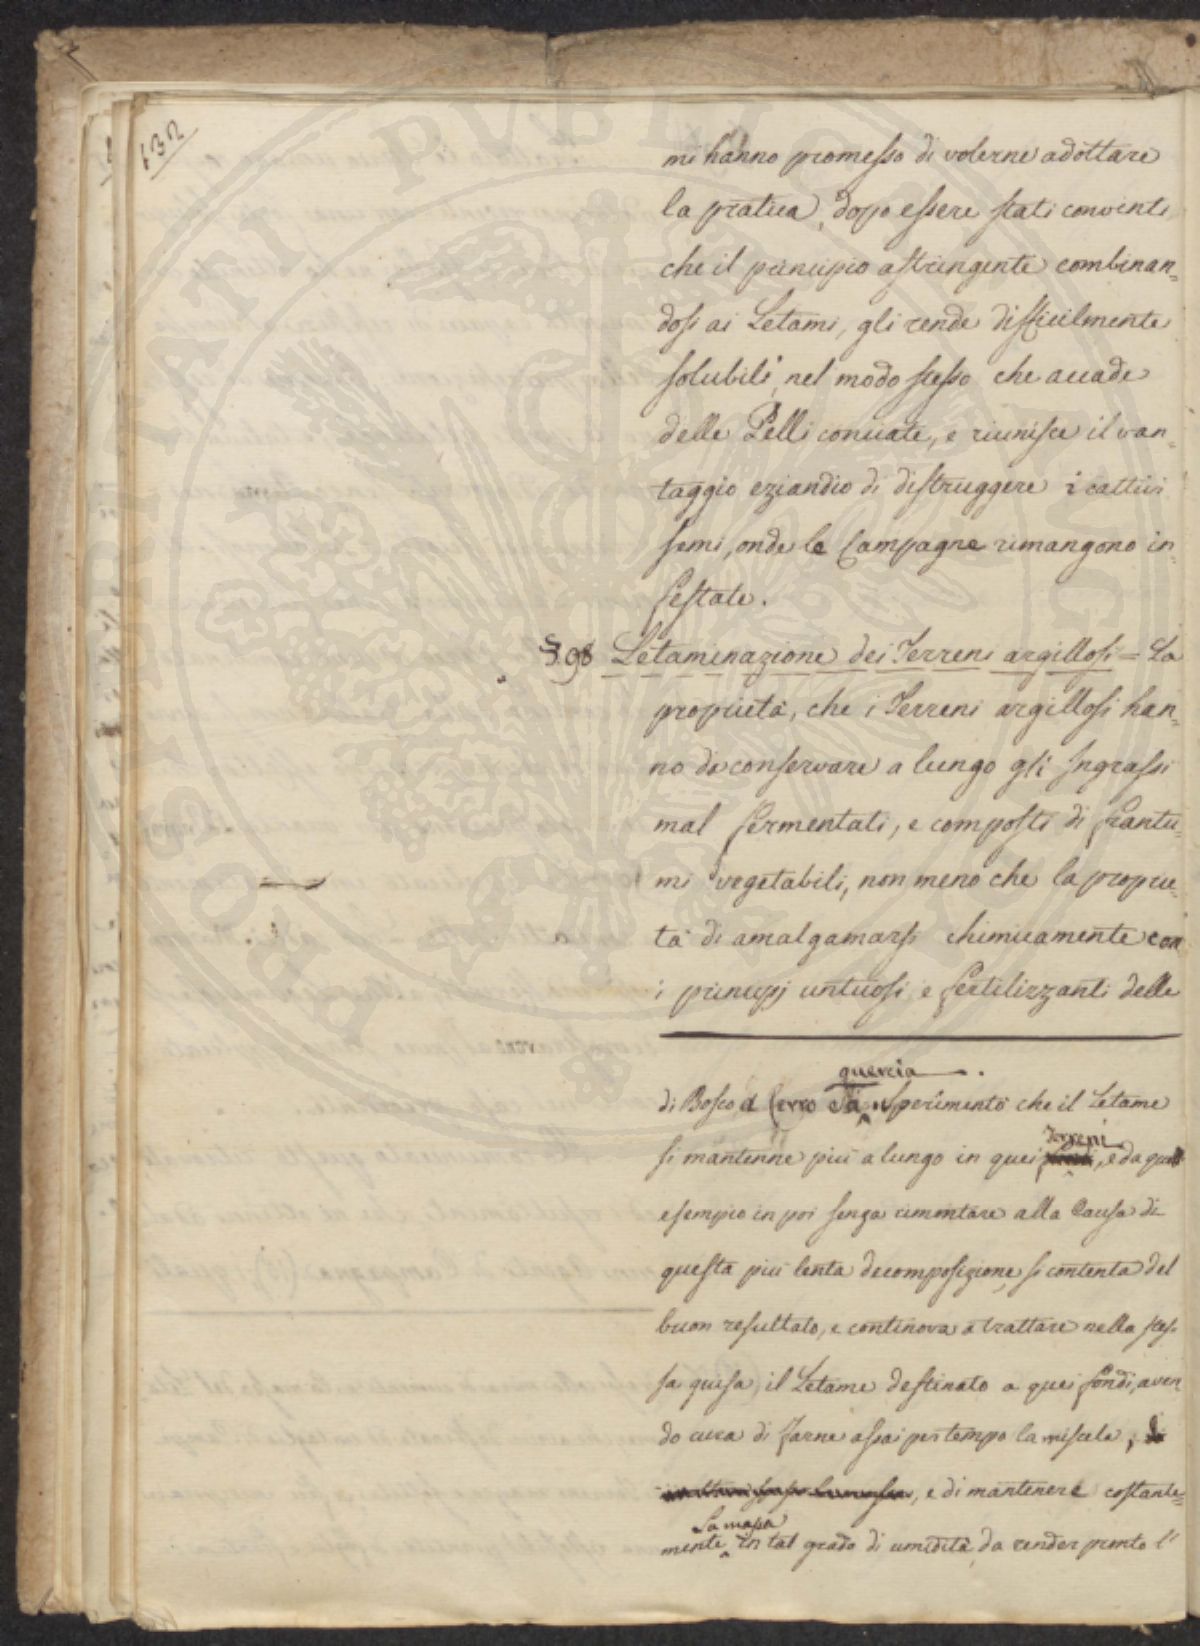 132
mi hanno promesso di volerne adottare
la pratica, dopo essere stati convinti
che il principio astringente combinan=
dosi ai Letami, gli rende difficilmente
solubili, nel modo stesso che accade
delle Pelli conciate, e riunisce il van=
taggio eziandio di distruggere i cattivi
semi, onde le Campagne rimangono in
festate.
§. 98 Letaminazione dei Terreni argillosi = La
proprietà, che i Terreni argillosi han=
no di conservare a lungo gli Ingrassi
mal fermentati, e composti di frantu=
mi vegetabili, non meno che la proprie=
tà di amalgamarsi chimicamente con
i principj untuosi, e fertilizzanti delle
quercia
di Bosco di Cerro e di sperimentò che il Letame
Terreni
si mantenne più a lungo in quei, e da quell
esempio in poi senza rimontare alla Causa di
questa più lenta decomposizione, si contenta del
buon resultato, e continova a trattare nella stes=
sa guisa, il Letame destinato a quei fondi, aven
do cura di farne assai per tempo la miscela,
, e di mantenere costante=
la massa
mente in tal grado di umidità, da render pronto l'
PROSPERITATI PUBLICAE AUGENDAE